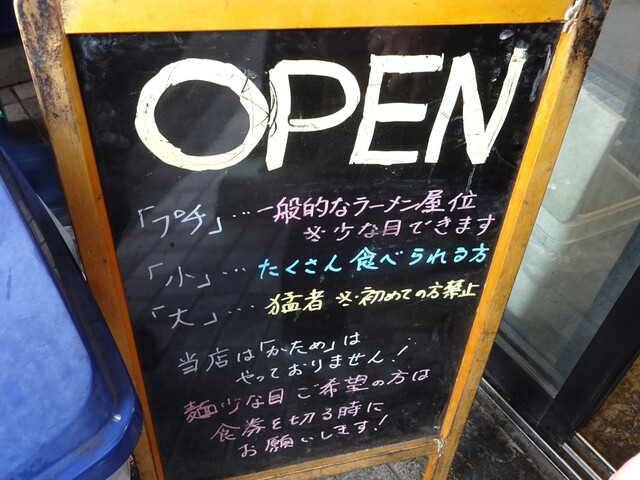 OPEN
「プチ」…一般的なラーメン屋位
※少な目できます
「小」…たくさん食べられる方
「大」…猛者 ※初めての方禁止
当店は「かため」は
やっておりません！
麺少な目ご希望の方は
食券を切る時に
お願いします！